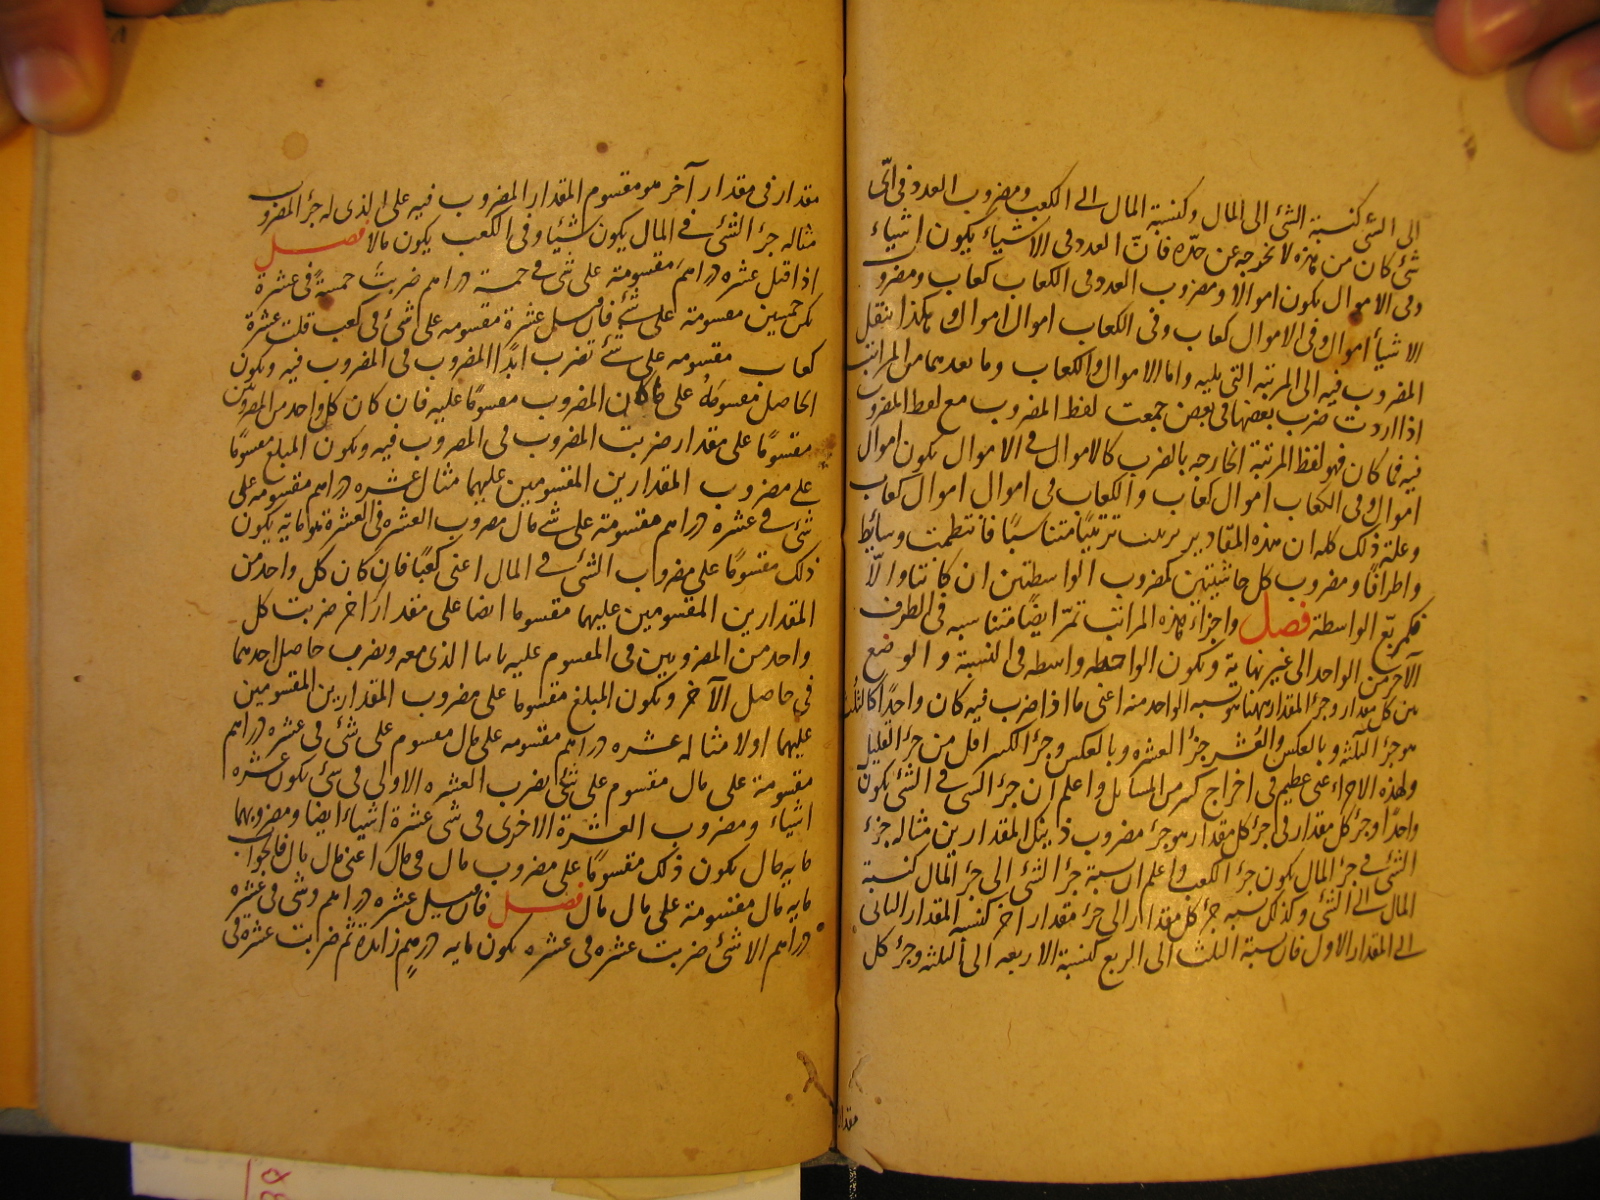 الى الشئ كنسبة الشئ الى المال وكنسبة المال الى الكعب ومضروب العدد فى اىّ
شئ كان من هذه لا يخرجه عن حدّه فانّ العدد فى الاشياء يكون اشياء
وفى الاموال يكون اموالا ومضروب العدد فى الكعاب كعاب ومضروب
الاشياء اموال وفى الاموال كعاب وفى الكعاب اموال اموال وهكذا ينتقل
المضروب فيه الى المرتبة التى يليه واما الاموال والكعاب وما بعدهما من المراتب
اذا اردت ضرب بعضها فى بعض جمعت لفظ المضروب مع لفظ المضروب
فيه فما كان فهو لفظ المرتبة الخارجه بالضرب كالاموال فى الاموال يكون اموال
اموال وفى الكعاب اموال كعاب والكعاب فى اموال اموال اموال كعاب
وعلة ذلك كله ان هذه المقادير ترتبت ترتيبًا متناسبًا فانتظمت وسائط
واطرافًا ومضروب كل حاشيتين كمضروب الواسطتين ان كانتا والّا
فكمربّع الواسطة فصل واجزاء هذه المراتب تمرّ ايضًا متناسبه فى الطرف
الآخر من الواحد الى غير نهاية ويكون الواحد واسطه فى النسبة والوضع
من كل مقدار وجزء المقدار ههنا هو نسبه الواحد منه اعنى ما اذا ضرب فيه كان واحدًا كالثلث
هو جزء الثلثه وبالعكس والعُشر جزء العشره وبالعكس وجزء الكسر اقل من جزء القليل
ولهذه الاجزاء غنى عظيم فى اخراج كثير من المسائل واعلم ان جزء الشئ فى الشئ يكون
واحدًا وجزء كل مقدار فى جزء كل مقدار هو جزء مضروب ذينك المقدارين مثاله جزء
الشئ فى جزء المال يكون جزء الكعب واعلم ان نسبة جزء الشئ الى جزء المال كنسبة
المال الى الشئ وكذلك نسبه جزء كل مقدار الى جزء مقدار آخر كنسبه المقدار الثانى
الى المقدار الاول فان نسبة الثلث الى الربع كنسبة الاربعه الى الثلثه وجزء كل
مقدار
مقدار فى مقدار آخر هو مقسوم المقدار المضروب فيه على الذى له جزء المضروب
مثاله جزء الشئ فى المال يكون شيئا وفى الكعب يكون مالا فصل
اذا قيل عشره دراهم مقسومة على شئ فى خمسة دراهم ضربت خمسةً فى عشرة
يكن خمسين مقسومة على شئ فان قيل عشرة مقسومه على شئ فى كعب قلت عشرة
كعاب مقسومه على شئ تضرب ابدًا المضروب فى المضروب فيه ويكون
الحاصل مقسومًا على ما كان المضروب مقسومًا عليه فان كان كل واحد من المضروبين
مقسومًا على مقدار ضربت المضروب فى المضروب فيه ويكون المبلغ مقسومًا
على مضروب المقدارين المقسومين عليهما مثال عشره دراهم مقسومه على
شئ فى عشرة دراهم مقسومة على مال مضروب العشره فى العشرة هو مائة يكون
ذلك مقسومًا على مضروب الشئ فى المال اعنى كعبًا فان كان كل واحد من
المقدارين المقسومين عليهما مقسوما ايضا على مقدار آخر ضربت كل
واحد من المضروبين فى المقسوم عليه ثانيا الذى معه ويضرب حاصل احدهما
فى حاصل الآخر ويكون المبلغ مقسوما على مضروب المقدارين المقسومين
عليهما اولا مثاله عشره دراهم مقسومه على مال مقسوم على شئ فى عشره دراهم
مقسومة على مال مقسوم على شئ يضرب العشره الاولى فى شئ يكون عشره
اشياء ومضروب العشرة الاخرى فى شئ عشرة اشياء ايضا ومضروبهما
مايه مال يكون ذلك مقسومًا على مضروب مال فى مال اعنى مال مال فالجواب
مايه مال مقسومة على مال مال فصل فان قيل عشره دراهم وشئ فى عشره
دراهم الا شئ ضربت عشره فى عشره يكون مايه درهم زائدة ثم ضربت عشرة فى